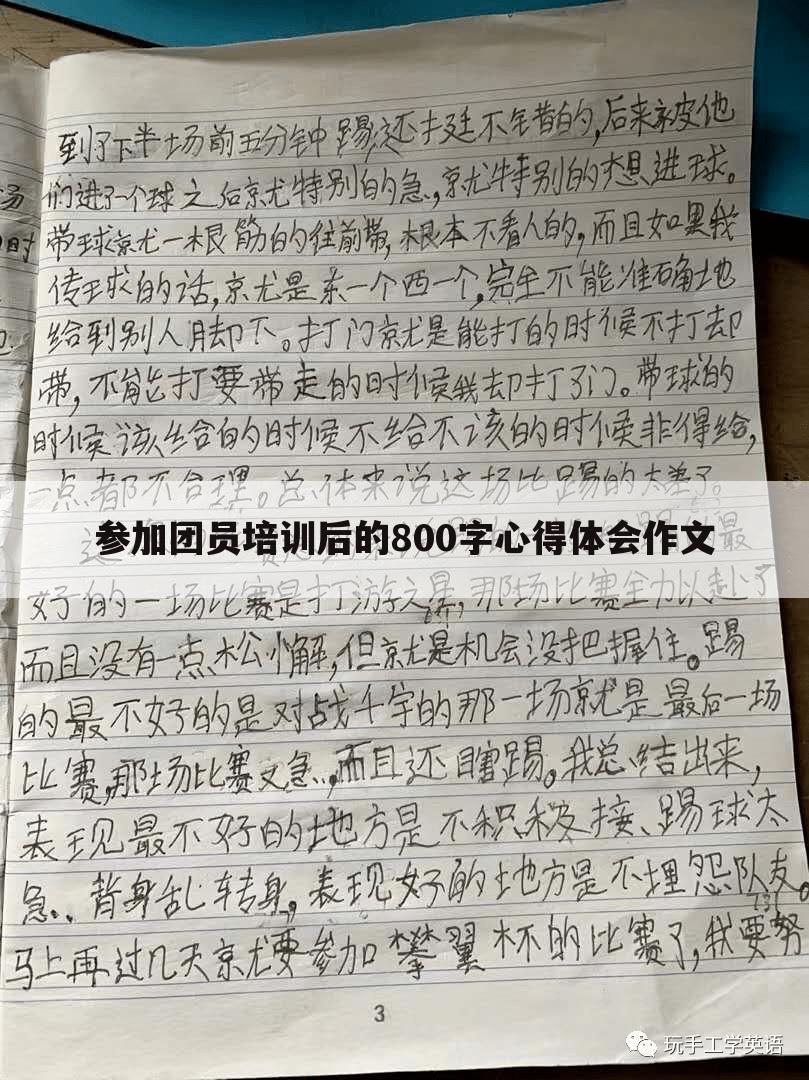 到了下半场前五分钟踢还挺不错的,后来被他
们进了一个球之后就特别的急,就特别的想进球。
带球就一根筋的往前带,根本不看人的,而且如果我
传球的话,就是东一个西一个,完全不能准确地
给到别人脚下。打门就是能打的时候不打却
带,不能打要带走的时候我却打了门。带球的
时候该给的时候不给不该的时候非得给,
一点都不合理。总体来说这场比踢的太差了。
参加团员培训后的800字心得体会作文
最
好的一场比赛是打游之星,那场比赛全力以赴了
而且没有一点松懈,但就是机会没把握住。踢
的最不好的是对战千宇的那一场就是最后一场
比赛,那场比赛又急,而且还瞎踢。我总结出来,
表现最不好的地方是不积极接、踢球太
急、背身乱转身,表现好的地方是不埋怨队友。
731
马上再过几天就要参加攀翼杯的比赛了,我要努
3
玩手工学英语
场
时